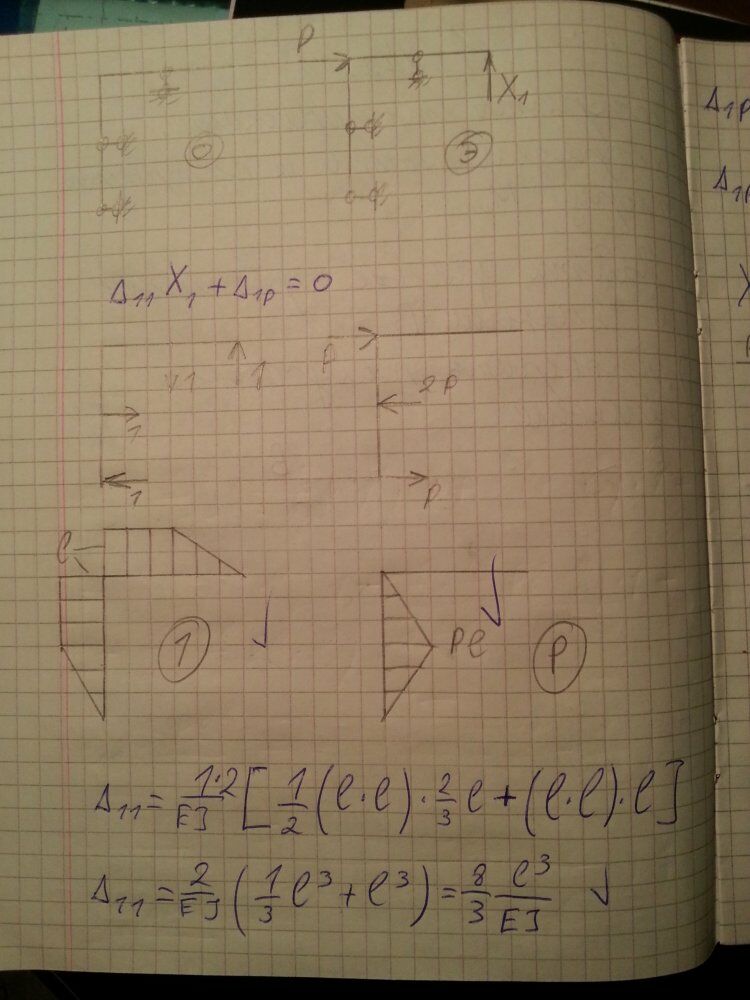 P
X₁
0
Э
Δ₁₁ X₁ + Δ₁P = 0
1
P
2P
1
1
P
l
1
Pl
P
Δ₁₁ = 1·2/EJ [ 1/2 (l·l) · 2/3 l + (l·l)·l ]
Δ₁₁ = 2/EJ ( 1/3 l³ + l³ ) = 8/3 l³/EJ ✓
Δ₁P
Δ₁P